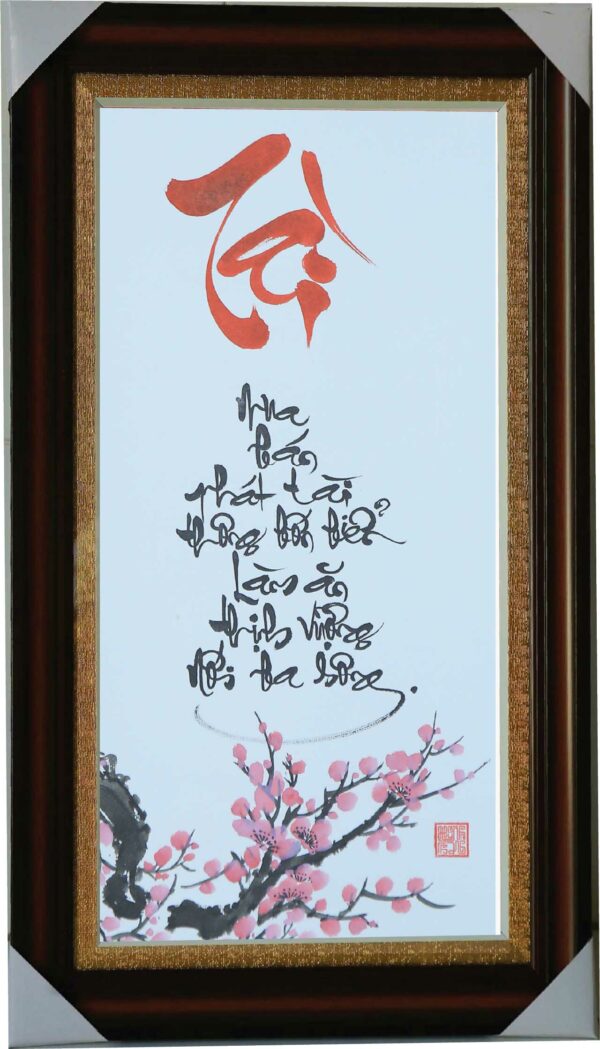 Tài
Mua
bán
phát tài
thông bốn biển
Làm ăn
thịnh vượng
nối ba sông.